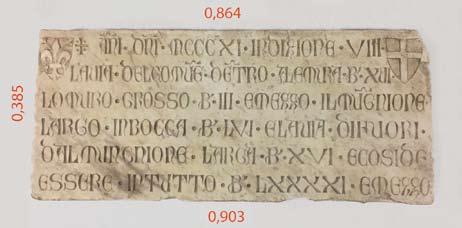 0,864
✠ ĀNI · DN̄I · MCCCXI · INDIZIONE · VIII
LAVIA · DELCOMUE · DĒTRO · ALEMURA · B · XVI
LOMURO · GROSSO · B · III · EMEZZO · ILMUGNIONE ·
0,385
LARGO · INBOCCA · B · LVI · ELAVIA · DIFUORI ·
DALMINGNIONE · LARGA · B · XVI · ECOSIDE
ESSERE · INTUTTO · B · LXXXXI · EMEZZO
0,903